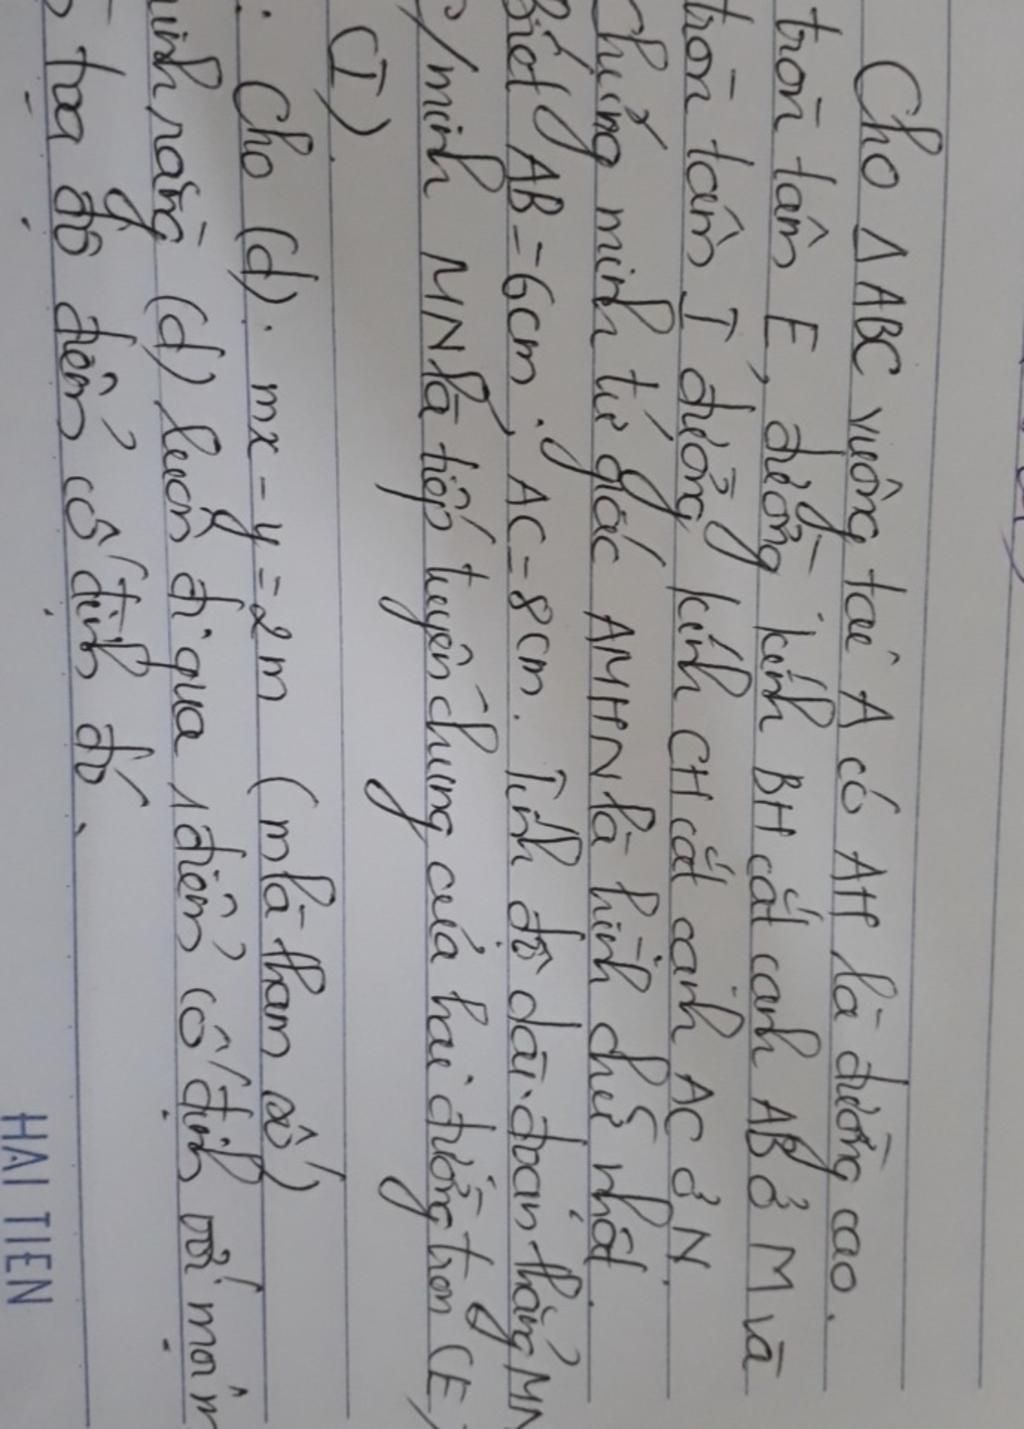 Cho Δ ABC vuông tại A có AH là đường cao.
tròn tâm E, đường kính BH cắt cạnh AB ở M và
tròn tâm I đường kính CH cắt cạnh AC ở N.
Chứng minh tứ giác AMHN là hình chữ nhật.
Biết AB = 6cm, AC = 8cm. Tính độ dài đoạn thẳng MN
c/minh MN là tiếp tuyến chung của hai đường tròn (E)
(I).
: Cho (d). mx - y = 2m (m là tham số)
minh rằng (d) luôn đi qua 1 điểm cố định với mọi m
tọa độ điểm cố định đó.
HAI TIEN